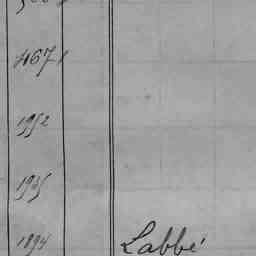 467
1952
1935
1894 Labbé